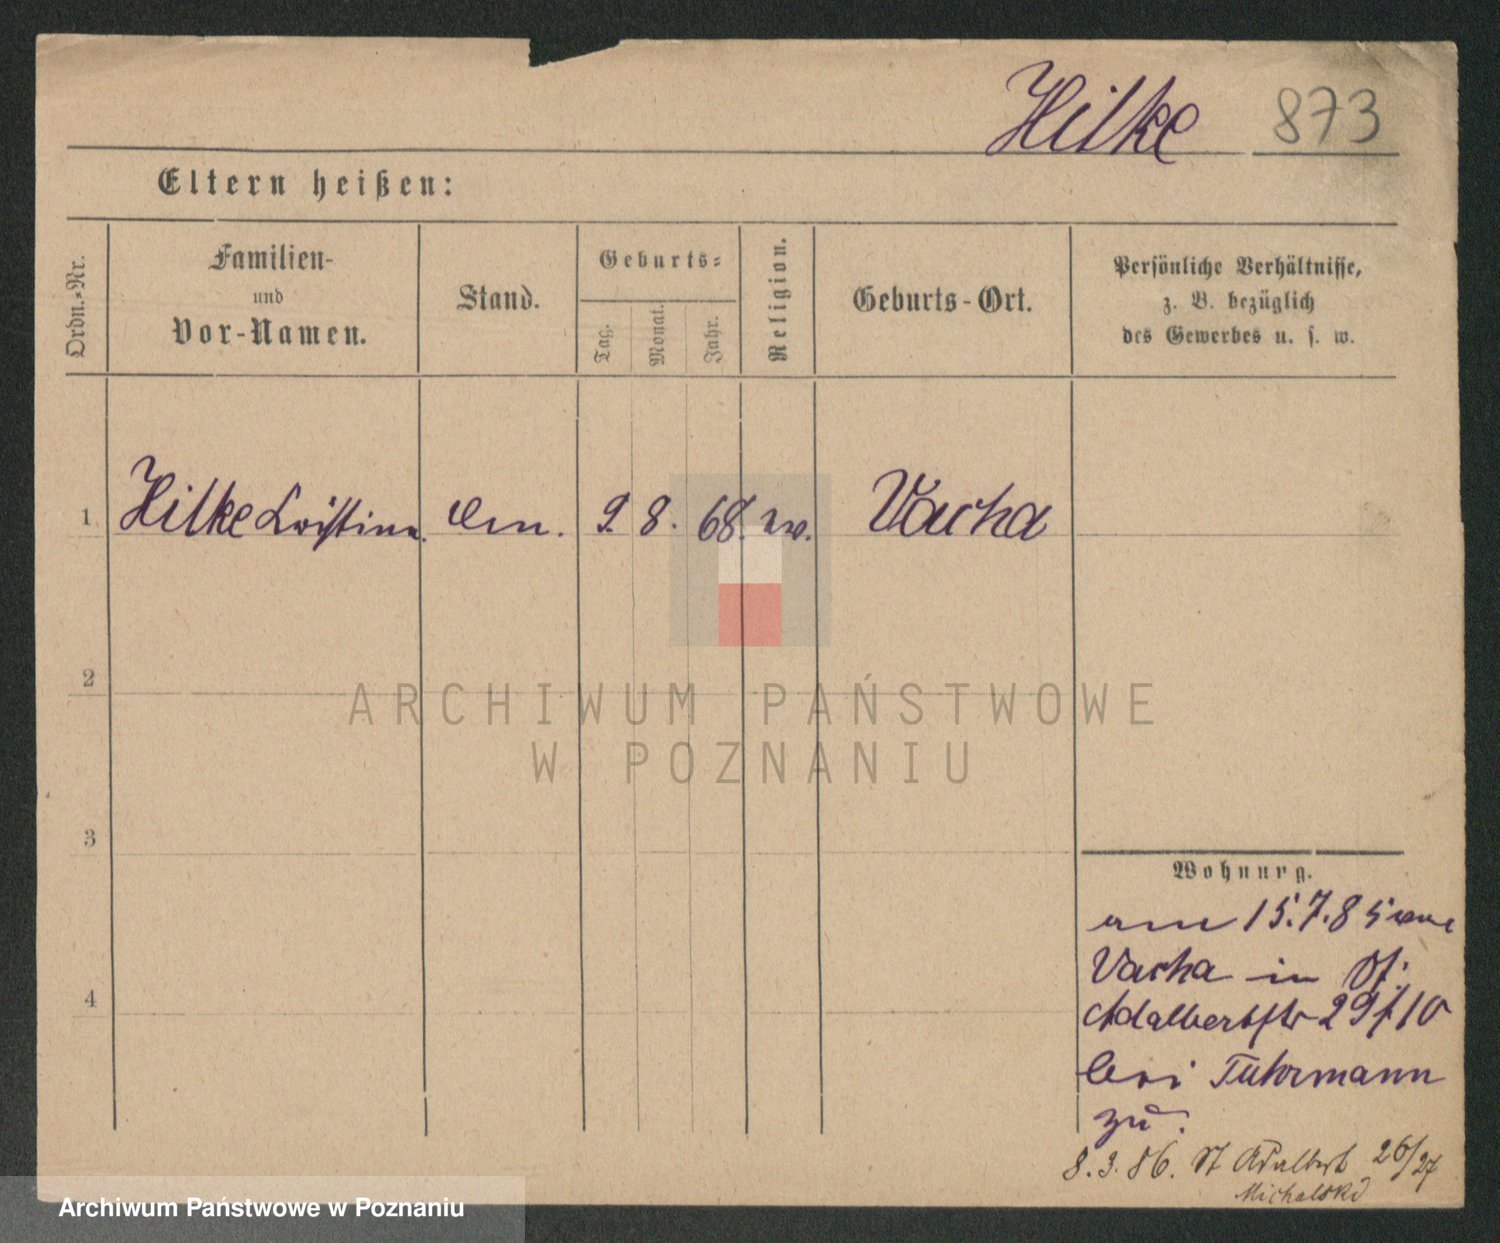 Hilke 873
Eltern heißen:
Ordn.=Nr.
Familien-
und
Vor-Namen.
Stand.
Geburts=
Tag.
Monat.
Jahr.
Religion.
Geburts-Ort.
Persönliche Verhältnisse,
z. B. bezüglich
des Gewerbes u. s. w.
1 Hilke 9. 8. 68. Vacha
2
3
4
Wohnung.
15.7.85
Vacha in St.
Adalbertstr 29/10
bei Fuhrmann
zu.
8.3.86. St Adalbert 26/27
Michalski
ARCHIWUM PAŃSTWOWE
W POZNANIU
Archiwum Państwowe w Poznaniu